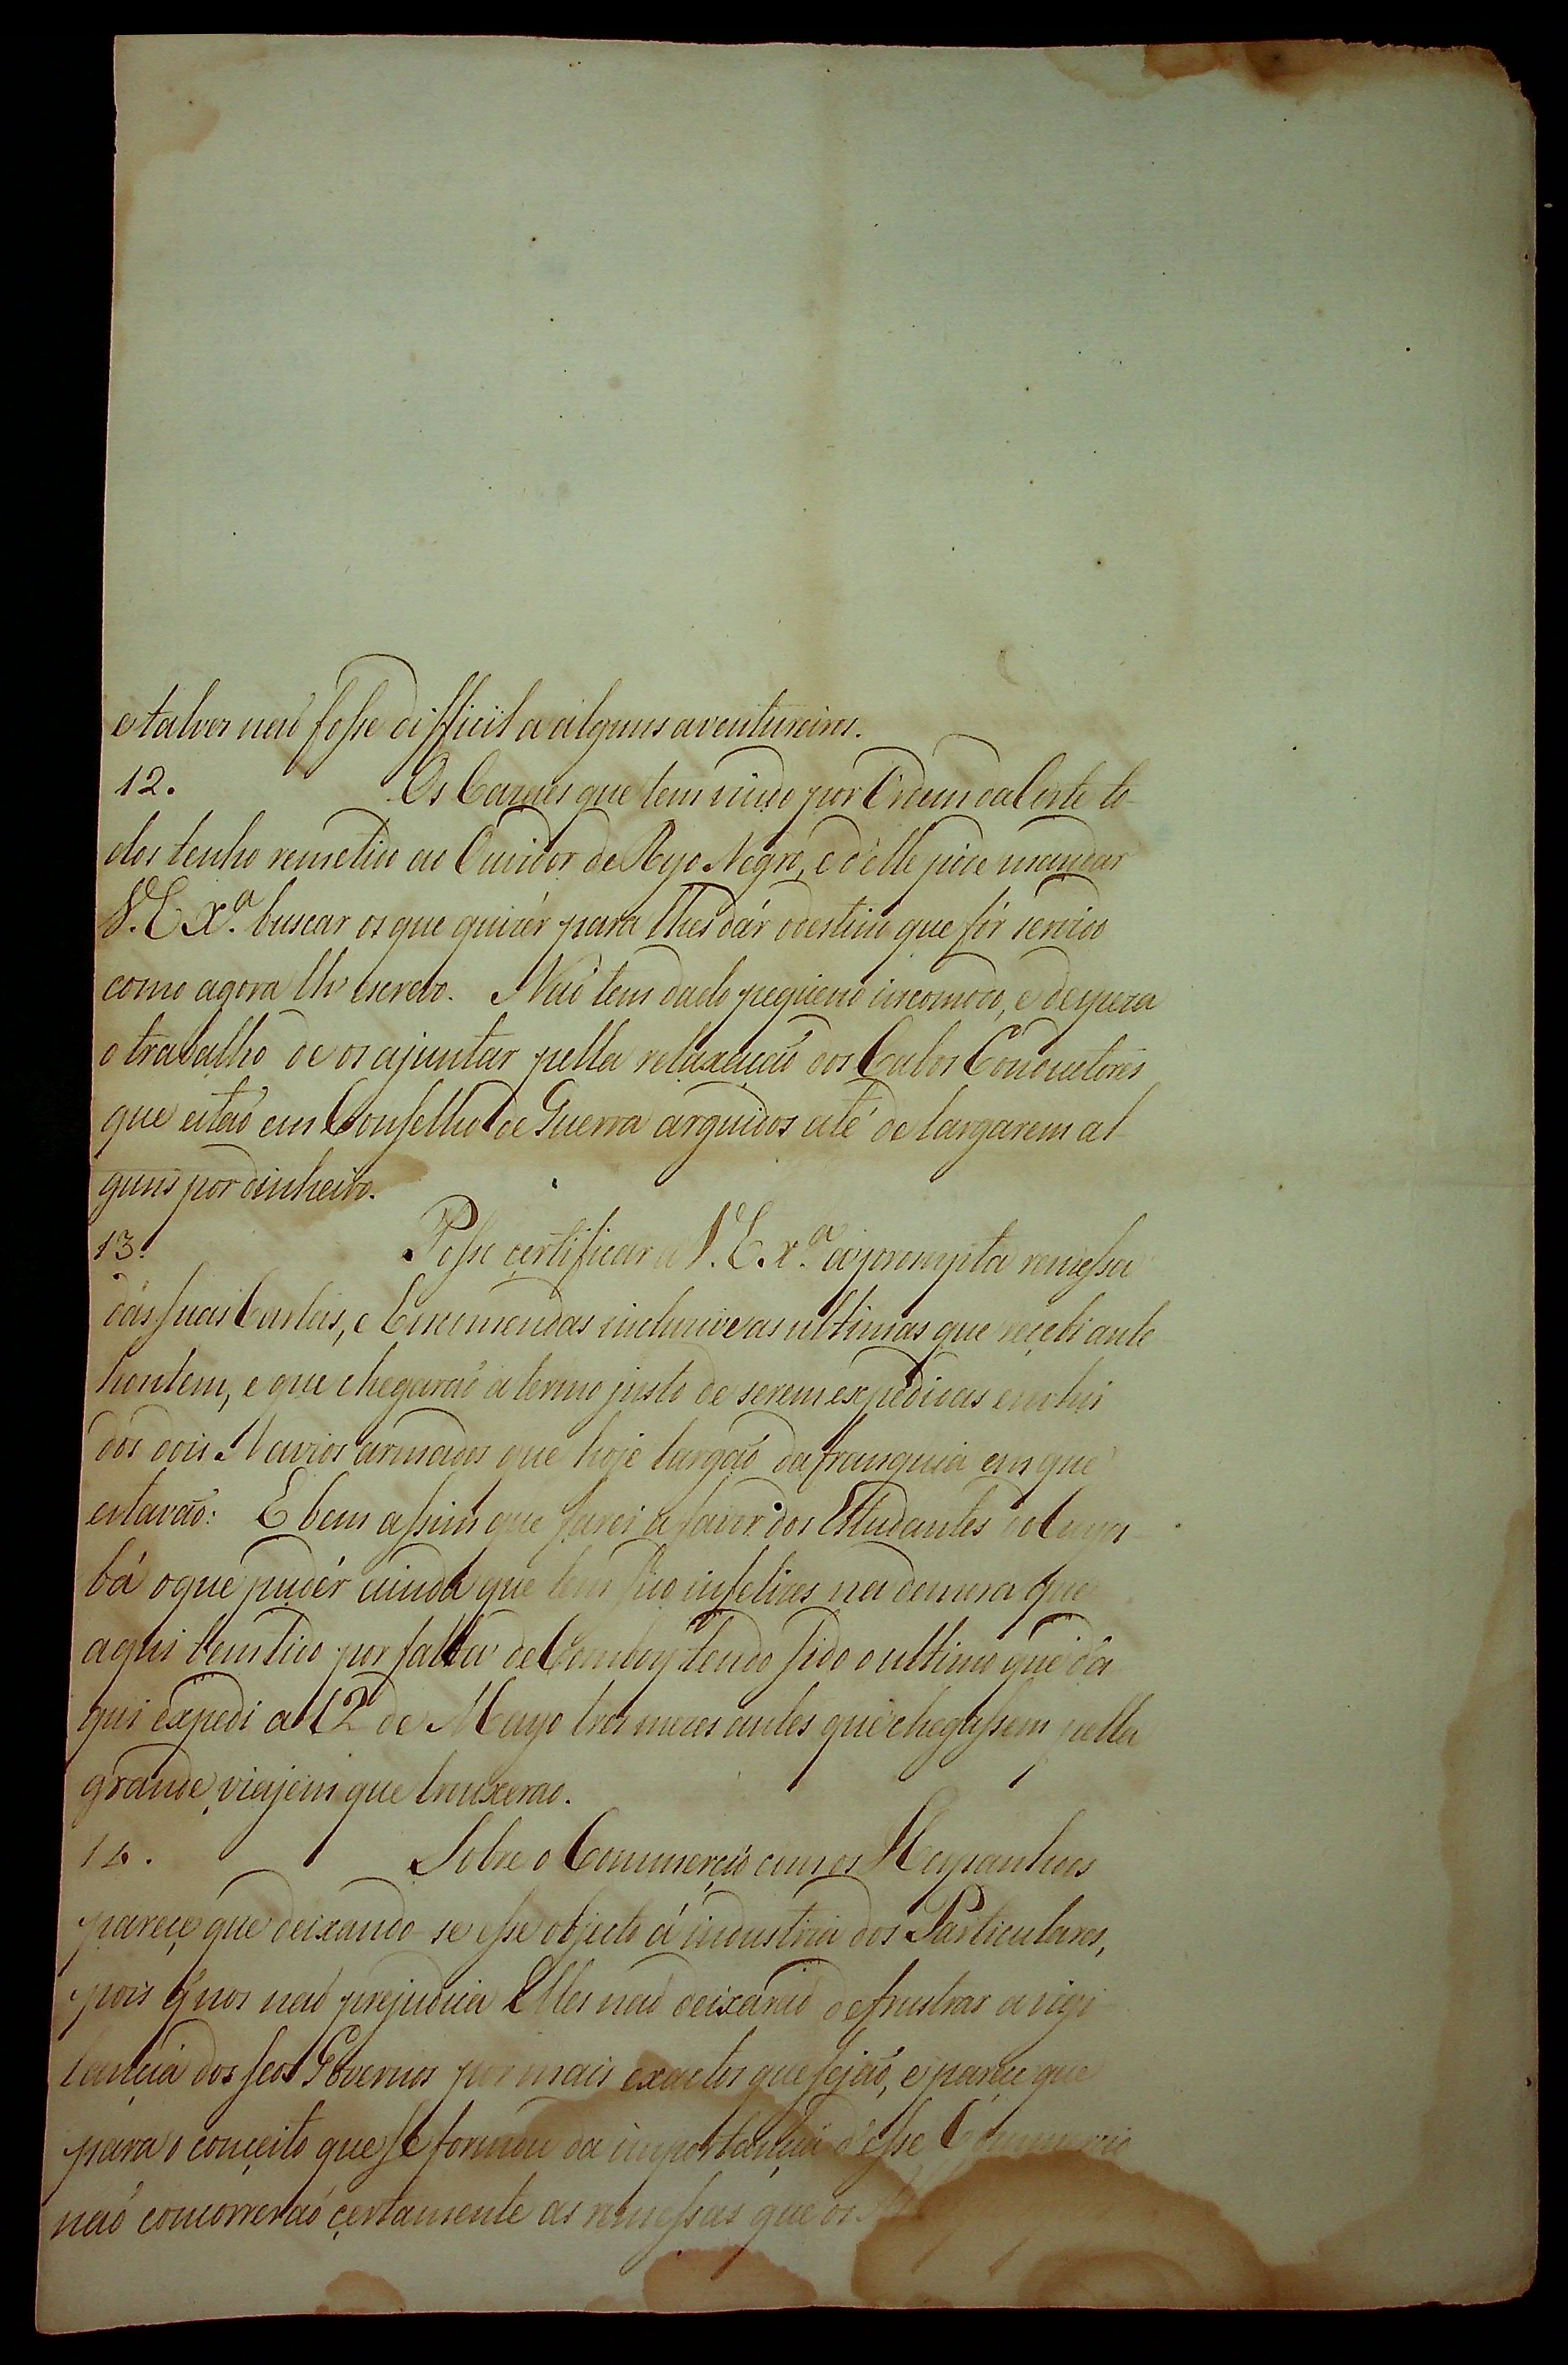 e talvez naõ fosse difficil a alguns aventureiros.
12. Os Cazaes que tem vindo por Ordem da Corte to-
dos tenho remetido ao Ouvidor de Ryo Negro, e d'elle póde mandar
V. Exª. buscar os que quizér para lhes dár o destino que fôr servido
como agora lh' escrevo. Naõ tem dado pequeno incomodo, e despeza
o trabalho de os ajuntar pella relaxaçaõ dos Cabos Conductores
que estaõ em Conselho de Guerra arguidos até de largarem al-
guns por dinheiro.
13. Posso certificar a V. Exª. a prompta remessa
das suas Cartas, e Encomendas inclusive as ultimas que recebi ante
hontem, e que chegaraõ a termo justo de serem expedidas em hũ
dos dois Navios armados que hoje largaõ da franquia em que
estavaõ: E bem assim que farei a favor dos Estudantes do Cuya-
bá o que pudér ainda que tem sido infelizes na demora que
aqui tem tido por falta de Comboy tendo sido o ultimo que da-
qui expedi a 12 de Mayo tres mezes antes que chegassem pella
grande viajem que trouxeraõ.
14. Sobre o Commerçio com os Hespanhoes
pareçe que deixando-se esse objecto á industria dos Particulares,
pois q̃ nos naõ prejudica Elles naõ deixaraõ de frustrar a vigi-
lançia dos seos Governos por mais exactos que sejaõ, e pareçe que
para o conçeito que se formou da importançia d'esse Commercio
naõ concorreraõ çertamente as remessas que os